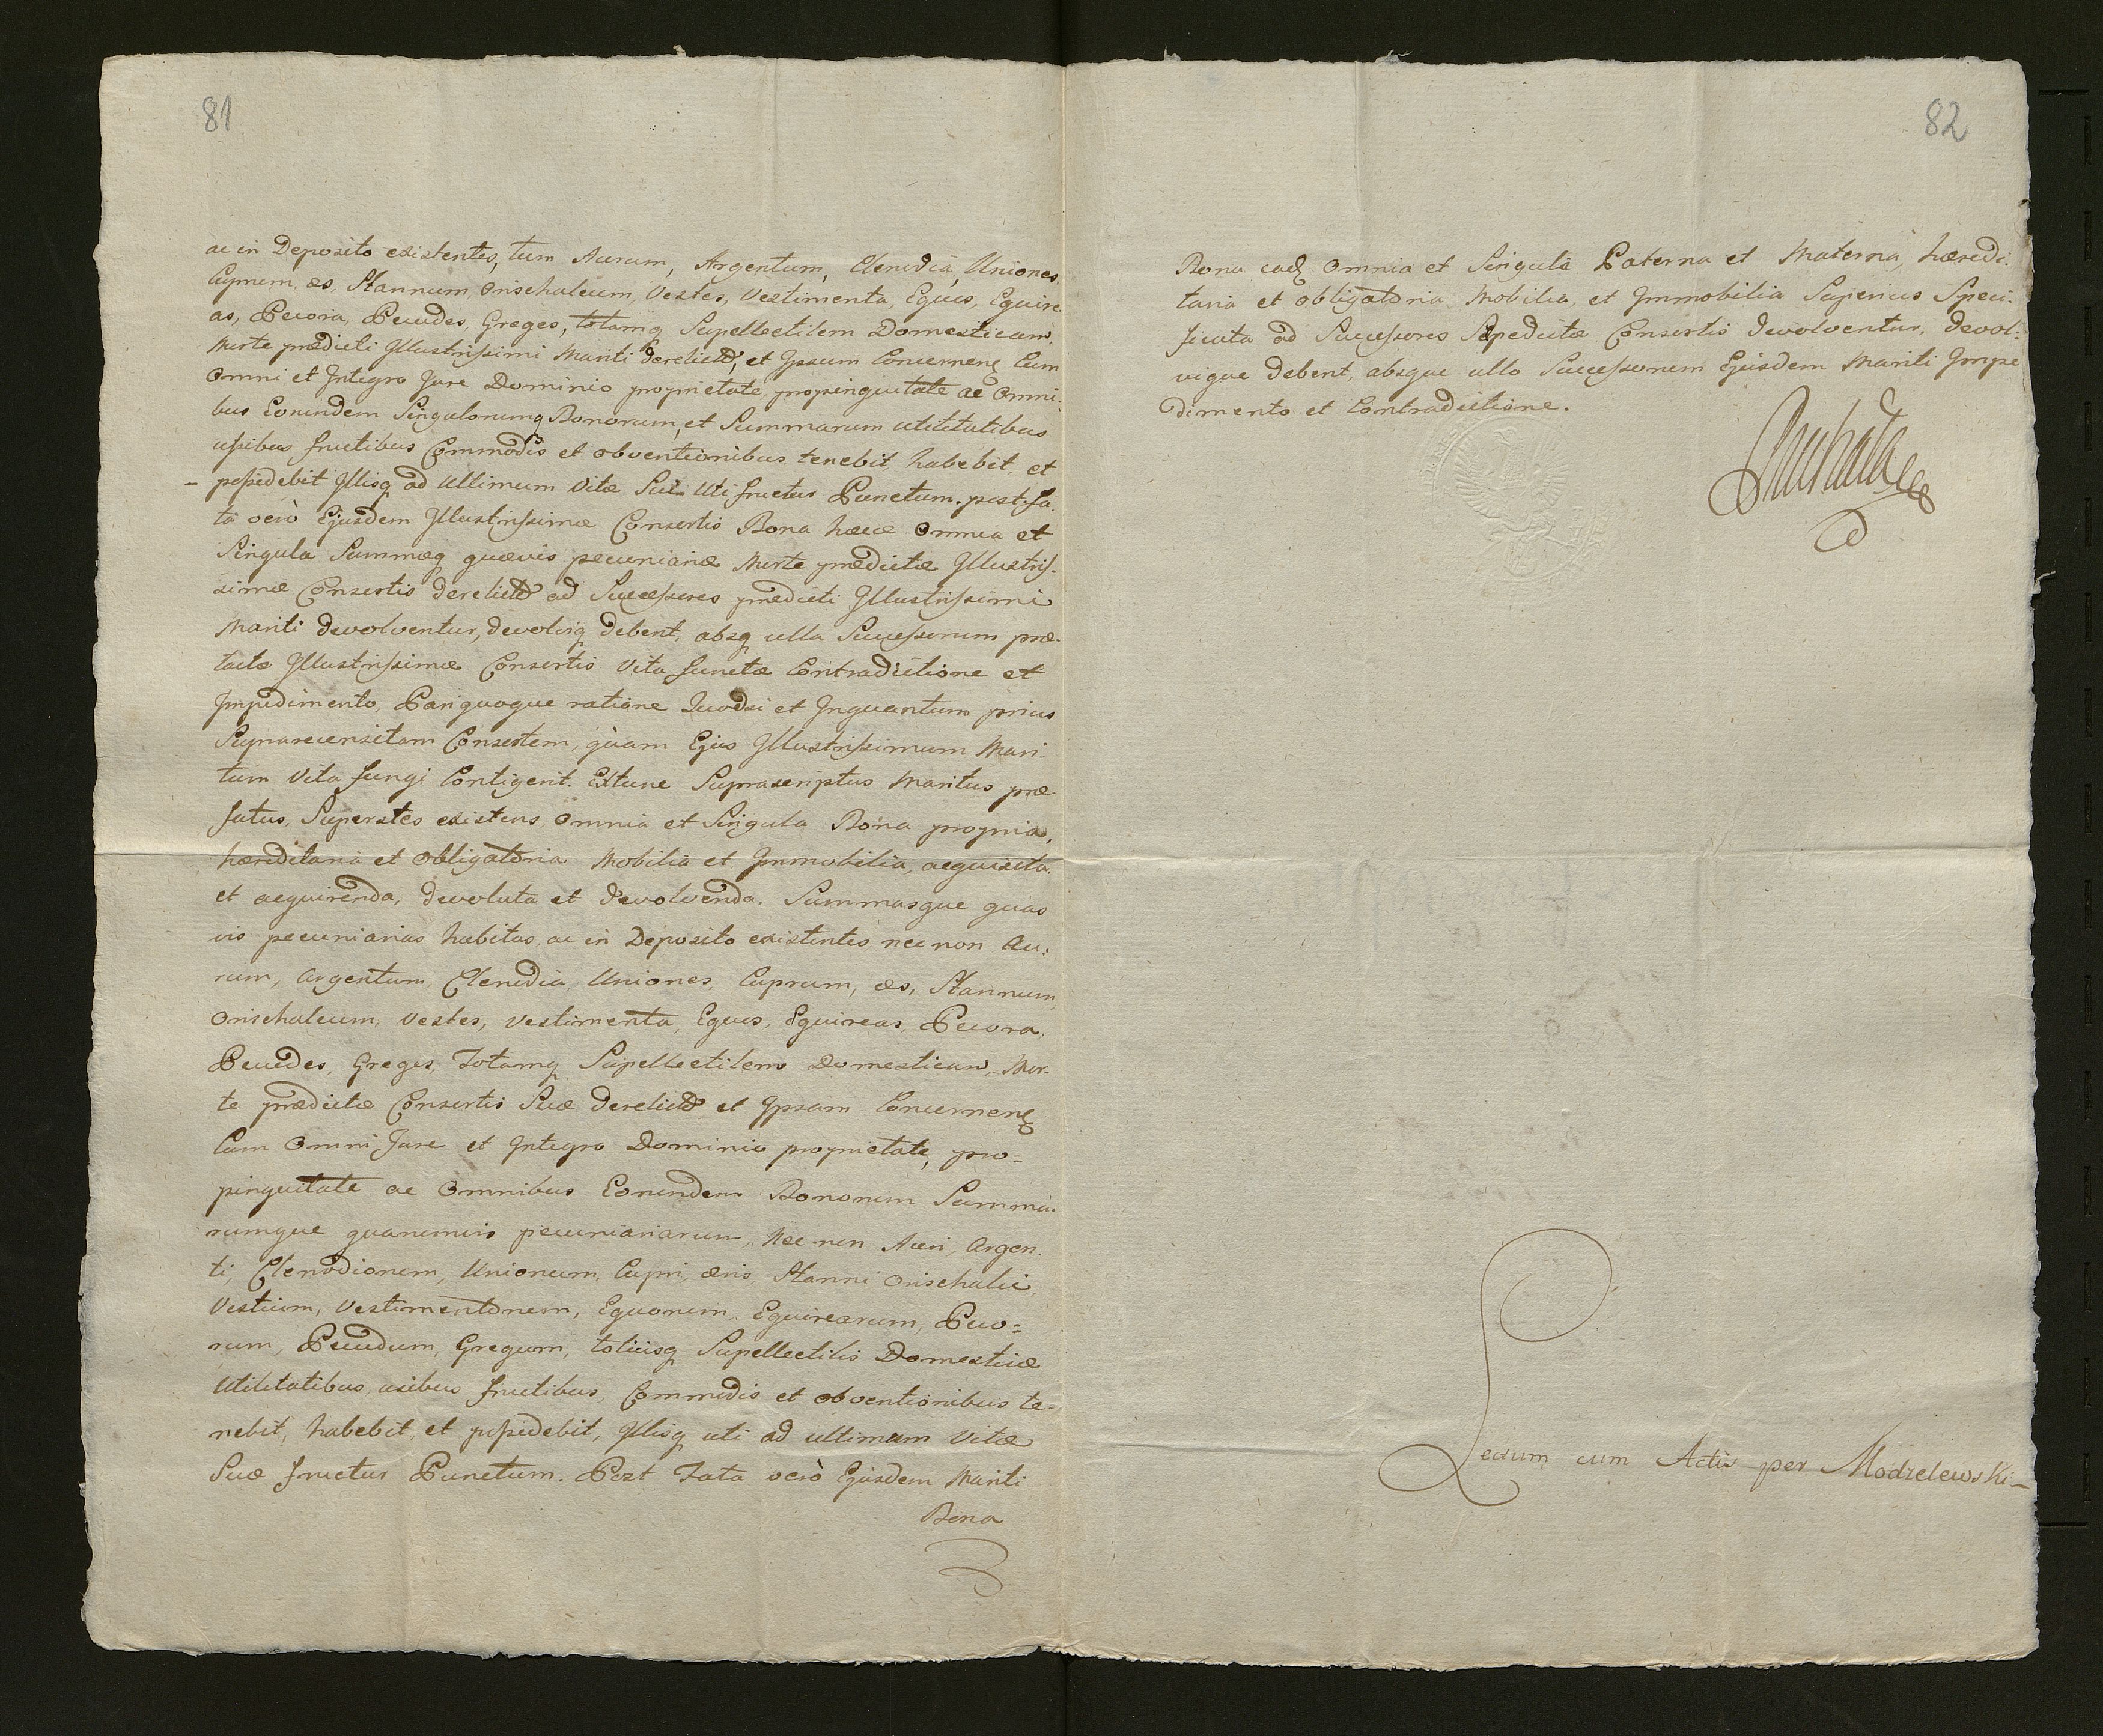 81
ac in Deposito existentes, tum Aurum, Argentum, Clenodia, Uniones,
Cuprum, æs, Stannum, Orischalcum, Vestes, Vestimenta, Equos, Equire-
as, Pecora, Pecudes, Greges, totamq Supellectilem Domesticam,
Morte prædicti Illustrissimi Mariti derelict, et Ipsum Concernen Cum
Omni et Integro Jure Dominio proprietate, propinquitate ac Omni-
bus Eorundem Singulorumq Bonorum, et Summarum utilitatibus
usibus fructibus Commodis et obventionibus tenebit habebit et
possidebit Illisq ad Ultimum Vitæ Suæ Uti fructus Punctum. post fa-
ta verò Ejusdem Illustrissimæ Consortis Bona hæc Omnia et
Singula Summæq quævis pecuniariæ Morte prædictæ Illustris-
simæ Consortis derelict ad Successores prædicti Illustrissimi
Mariti devolventur, devolviq debent, absq ulla Successorum præ-
tactæ Illustrissimæ Consortis Vita functæ Contradictione et
Impedimento, Pariquoque ratione Quodsi et Inquantum prius
Suprarecensitam Consortem, quàm Ejus Illustrissimum Mari-
tum Vita fungi Contigerit. Extunc Suprascriptus Maritus præ
fatus, Superstes existens, Omnia et Singula Bona propria,
hæreditaria et Obligatoria Mobilia et Immobilia, acquisita,
et acquirenda, devoluta et devolvenda. Summasque quas
vis pecuniarias habitas, ac in Deposito existentes nec non Au-
rum, Argentum, Clenodia, Uniones, Cuprum, æs, Stannum
Orischalcum, Vestes, Vestimenta, Equos, Equireas, Pecora,
Pecudes, Greges, Totamq Supellectilem Domesticam, Mor-
te prædictæ Consortis Suæ derelict et Ipsam Concernen
Cum Omni Jure et Integro Dominio proprietate, pro=
pinquitate ac Omnibus Eorundem Bonorum Summa-
rumque quarumvis pecuniariarum, Nec non Auri, Argen-
ti, Clenodiorum, Unionum, Cupri, æris, Stanni Orischalci,
Vestium, Vestimentorum, Equorum, Equirearum, Peco=
rum, Pecudum, Gregum, totiusq Supellectilis Domesticæ
Utilitatibus, usibus fructibus, Commodis et obventionibus te-
nebit, habebit, et possidebit, Illisq uti ad ultimum Vitæ
Suæ fructus Punctum. Post Fata verò Ejusdem Mariti
Bona
82
Bona ead Omnia et Singula Paterna et Materna, hæredi-
taria et obligatoria Mobilia, et Immobilia Superius Speci-
ficata ad Successores Sæpedictæ Consortis devolventur, devol-
vique debent, absque ullo Successorum Ejusdem Mariti Impe
dimento et Contradictione.
Lectum cum Actis per Modzelewski